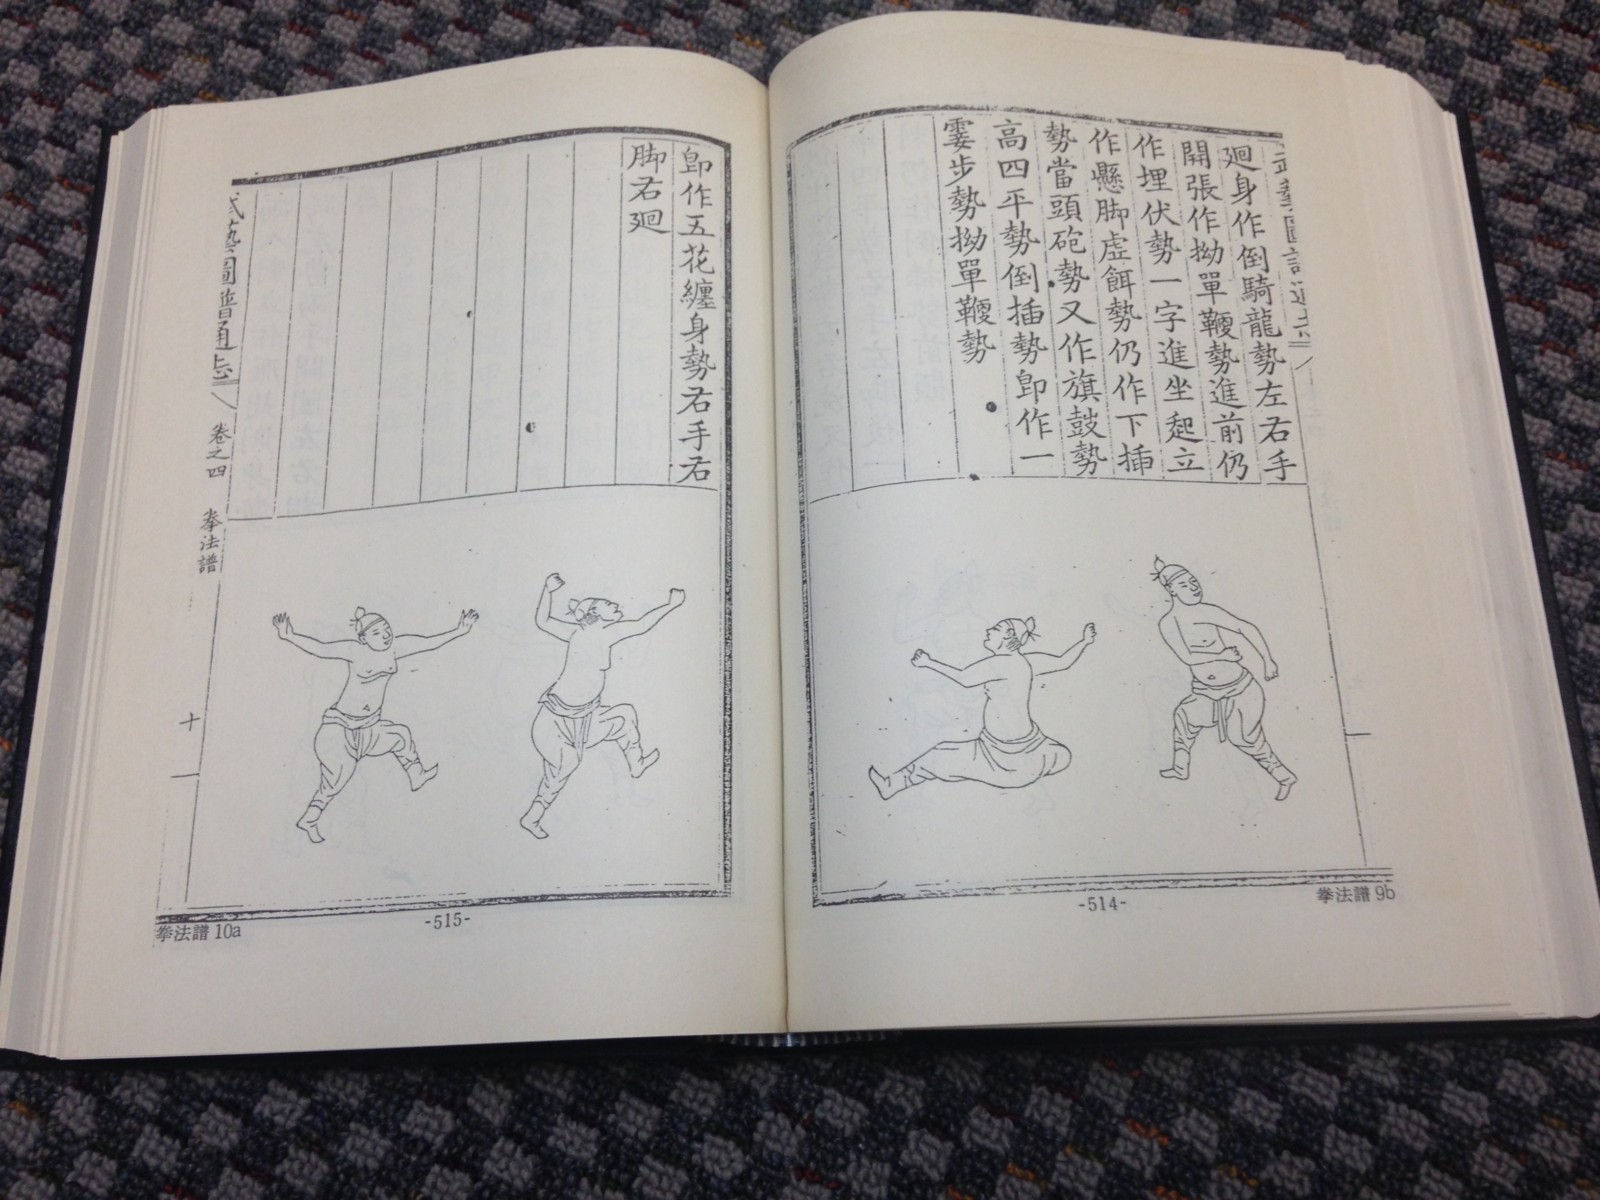 武藝圖譜通志
廻身作倒騎龍勢左右手
開張作拗單鞭勢進前仍
作埋伏勢一字進坐起立
作懸脚虛餌勢仍作下揷
勢當頭砲勢又作旗鼓勢
高四平勢倒揷勢卽作一
霎步勢拗單鞭勢
拳法譜 9b
-514-
卽作五花纏身勢右手右
脚右廻
武藝圖譜通志
卷之四
拳法譜
十
-515-
拳法譜 10a